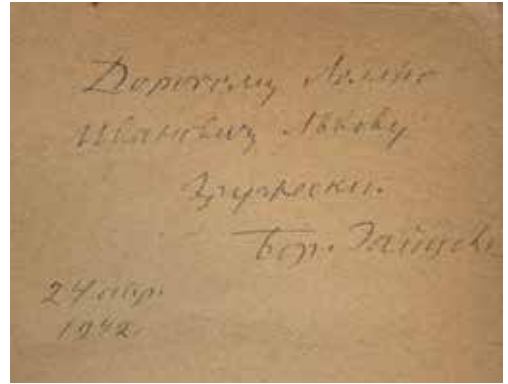 Дорогому Лоллию
Ивановичу Львову
дружески.
Бор. Зайцев
24 апр.
1942